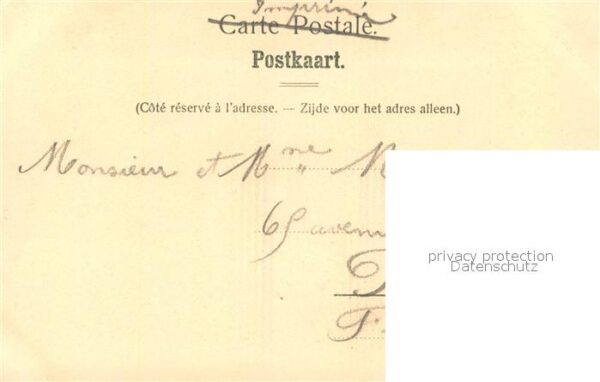 Imprimé
Carte Postale.
Postkaart.
(Côté réservé à l'adresse. — Zijde voor het adres alleen.)
Monsieur et Mme
privacy protection
Datenschutz